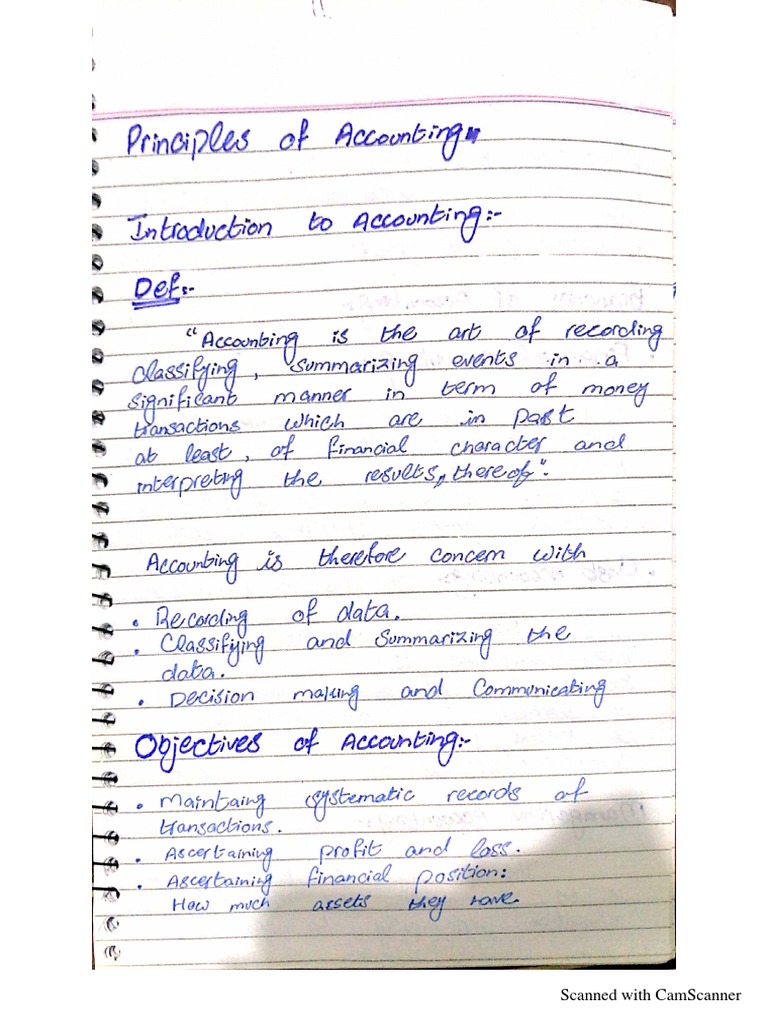 Principles of Accounting
Introduction to Accounting:-
Def:-
"Accounting is the art of recording
classifying, summarizing events in a
significant manner in term of money
transactions which are in past
at least, of financial character and
interpreting the results, thereof".
Accounting is therefore concern with
• Recording of data.
• Classifying and Summarizing the
data.
• Decision making and Communicating
Objectives of Accounting:-
• Maintaing systematic records of
transactions.
• Ascertaining profit and loss.
• Ascertaining financial position:
How much assets they have.
Scanned with CamScanner